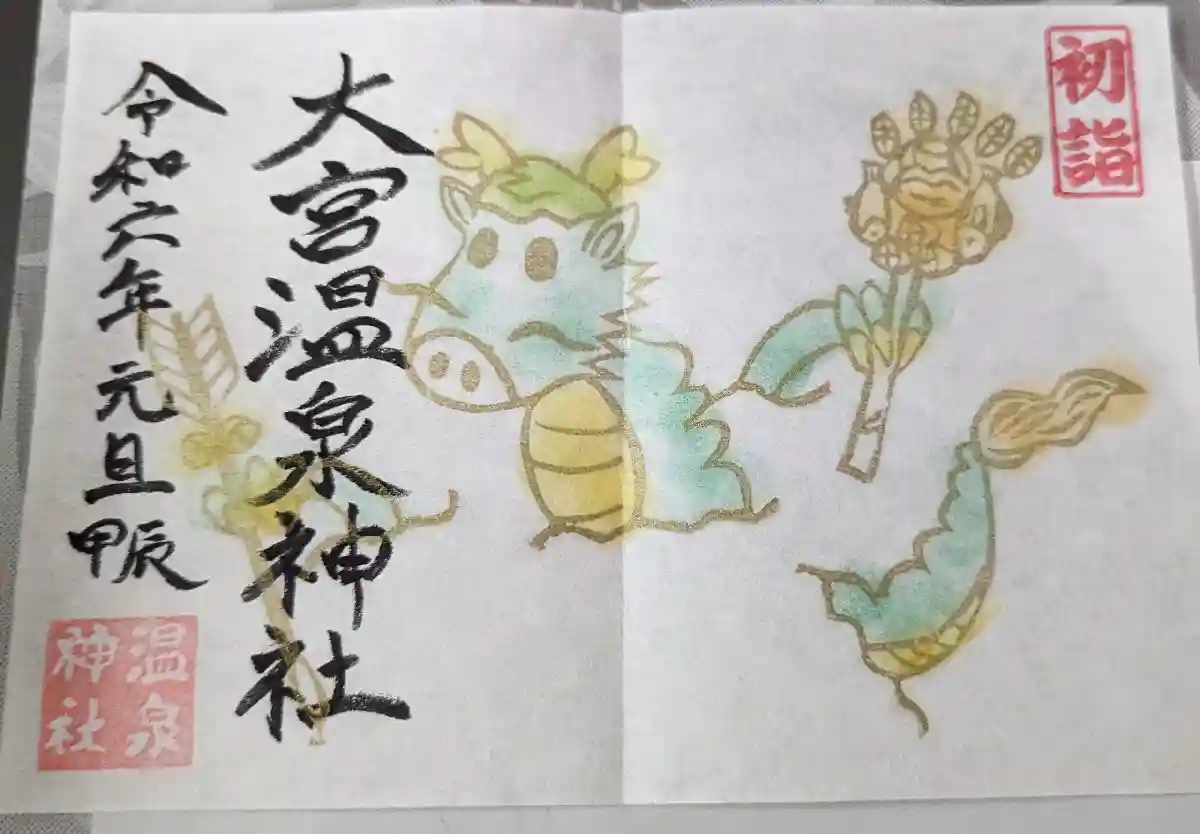 初詣
大宮温泉神社
令和六年元旦甲辰
温泉
神社